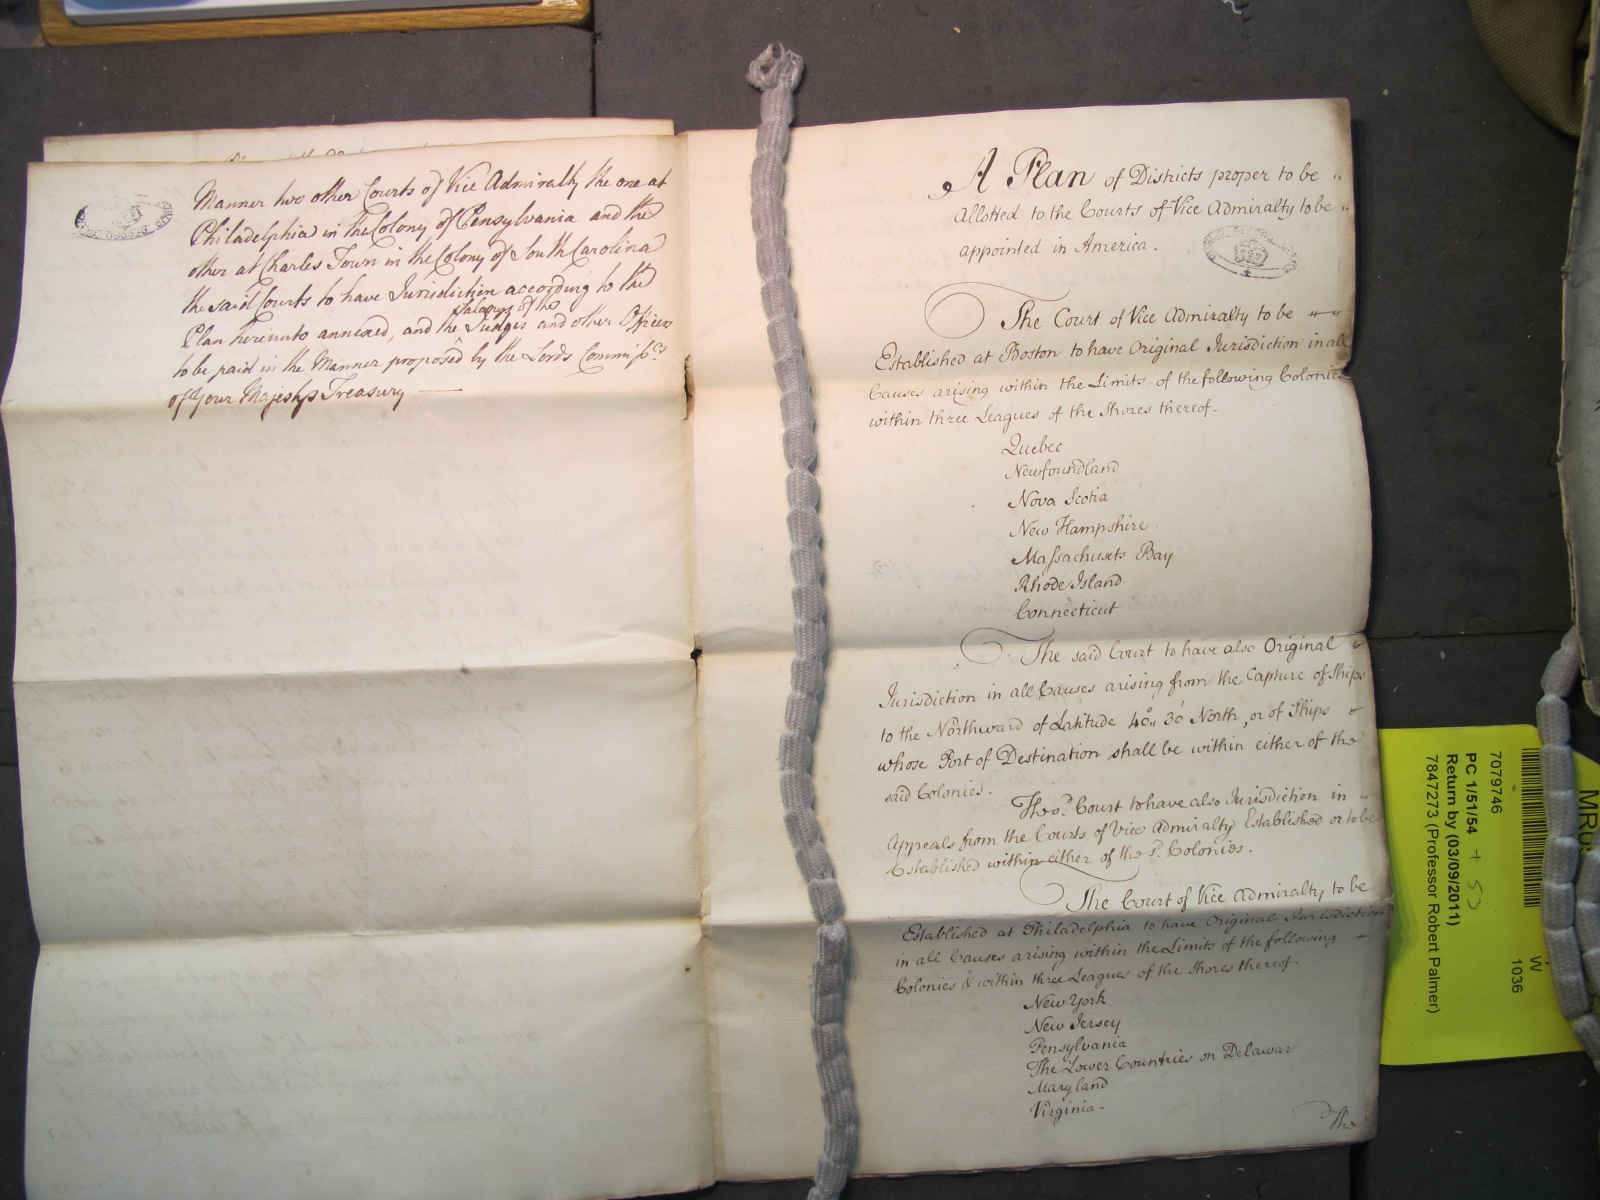 Manner two other Courts of Vice Admiralty the one at
Philadelphia in the Colony of Pensylvania and the
other at Charles Town in the Colony of South Carolina
the said Courts to have Jurisdiction according to the
Salarys of the
Plan hereunto annexed, and the Judges and other Officers
to be paid in the Manner proposed by the Lords Commissrs.
of Your Majestys Treasury —
A Plan of Districts proper to be
Allotted to the Courts of Vice Admiralty to be
appointed in America.
The Court of Vice Admiralty to be
Established at Boston to have Original Jurisdiction in all
Causes arising within the Limits of the following Colonies
within three Leagues of the Shores thereof.
Quebec
Newfoundland
Nova Scotia
New Hampshire
Massachusets Bay
Rhode Island
Connecticut
The said Court to have also Original
Jurisdiction in all Causes arising from the Capture of Ships
to the Northward of Latitude 40°,, 30' North, or of Ships
whose Port of Destination shall be within either of the
said Colonies.
The sd. Court to have also Jurisdiction in
Appeals from the Courts of Vice Admiralty Established or to be
Established within either of the sd. Colonies.
The Court of Vice Admiralty to be
Established at Philadelphia to have Original Jurisdiction
in all Causes arising within the Limits of the following
Colonies & within three Leagues of the Shores thereof.
New York
New Jersey
Pensylvania
The Lower Countries on Delawar
Maryland
Virginia.
The
7079746
PC 1/51/54 + 53
Return by (03/09/2011)
7847273 (Professor Robert Palmer)
W
1036